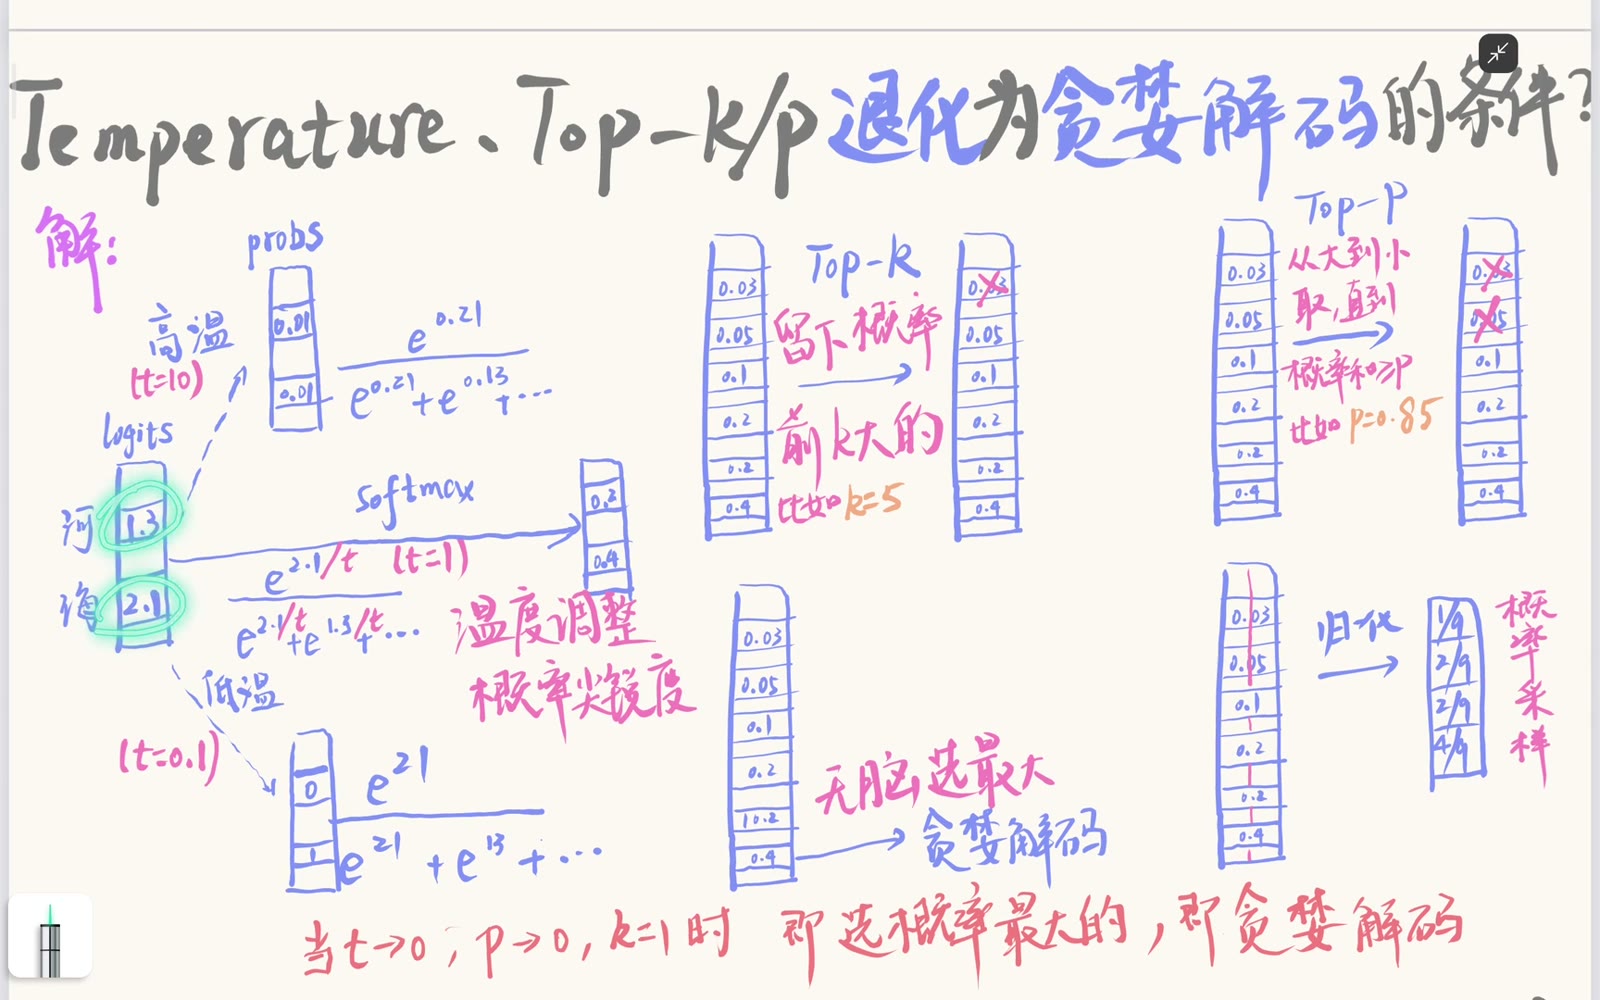 Temperature、Top-k/p 退化为贪婪解码的条件?
解:
probs
0.01
0.01
高温
(t=10)
e^0.21
e^0.21+e^0.13+...
logits
河
1.3
海
2.1
softmax
e^2.1/t (t=1)
e^2.1/t+e^1.3/t+...
0.2
0.4
温度调整
概率尖锐度
低温
(t=0.1)
0
1
e^21
e^21+e^13+...
0.03
0.05
0.1
0.2
0.2
0.4
Top-k
留下概率
前k大的
比如k=5
0.03
0.05
0.1
0.2
0.2
0.4
0.03
0.05
0.1
0.2
0.2
0.4
无脑选最大
贪婪解码
0.03
0.05
0.1
0.2
0.2
0.4
Top-P
从大到小
取,直到
概率和≥P
比如P=0.85
0.03
0.05
0.1
0.2
0.2
0.4
0.03
0.05
0.1
0.2
0.2
0.4
归一化
1/9
2/9
2/9
4/9
概率采样
当t→0,p→0,k=1时 即选概率最大的,即贪婪解码